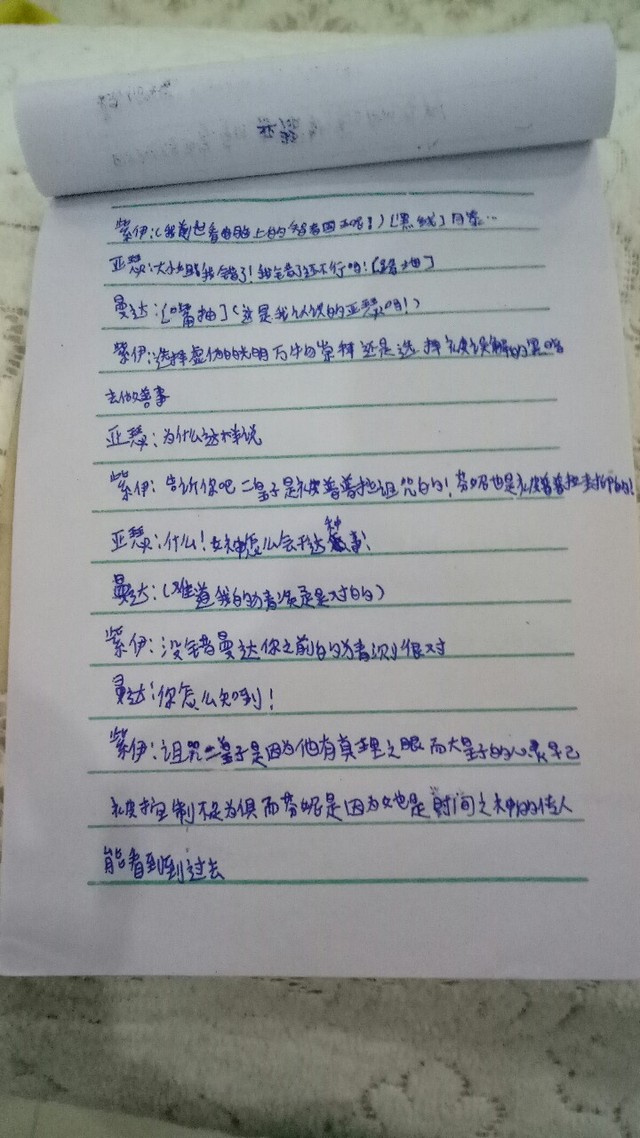 紫伊:(我
亚瑟:大小姐我错了!我错了还不行吗![嘴抽]
曼达:[嘴抽](这是我认识的亚瑟吗!)
紫伊:选择虚伪的光明万牛勿崇拜还是选择被误解的黑暗
去做善事
亚瑟:为什么这样说
紫伊:告诉你吧二皇子是被普普拉诅咒的!芬妮也是被普普拉封印的!
亚瑟:什么!女神怎么会干这种事!
曼达:(难道我的猜测是对的)
紫伊:没错曼达你之前的猜测很对
曼达:你怎么知到!
紫伊:诅咒二皇子是因为他有真理之眼而大皇子的心灵早已
被控制不足为俱而芬妮是因为她也是时间之神的传人
能看到到过去